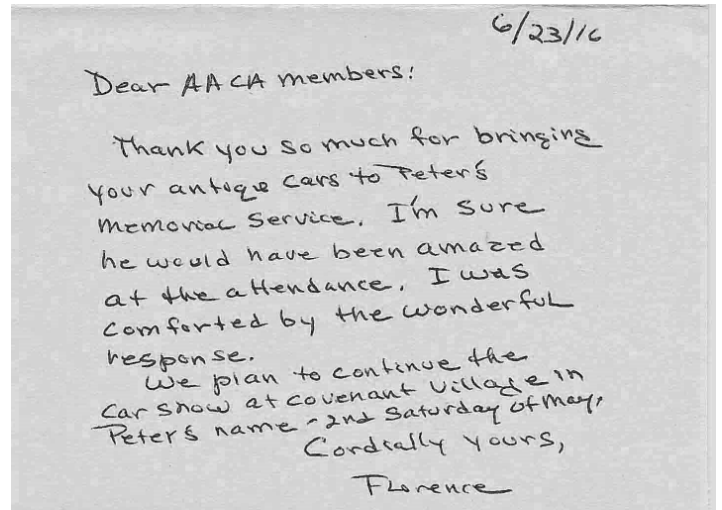 6/23/16
Dear AACA members:
Thank you so much for bringing
your antique cars to Peter's
memorial service. I'm sure
he would have been amazed
at the attendance. I was
comforted by the wonderful
response.
We plan to continue the
car show at Covenant Village in
Peter's name - 2nd Saturday of May.
Cordially yours,
Florence